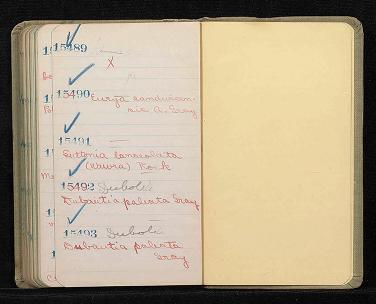 15489
X
15490 Eurya sandwicen-
sis A. Gray
15491
Suttonia lanceolata
(Wawra) Rock
15492 Duboli
Dubautia paleata Gray
15493 Duboli
Dubautia paleata
Gray